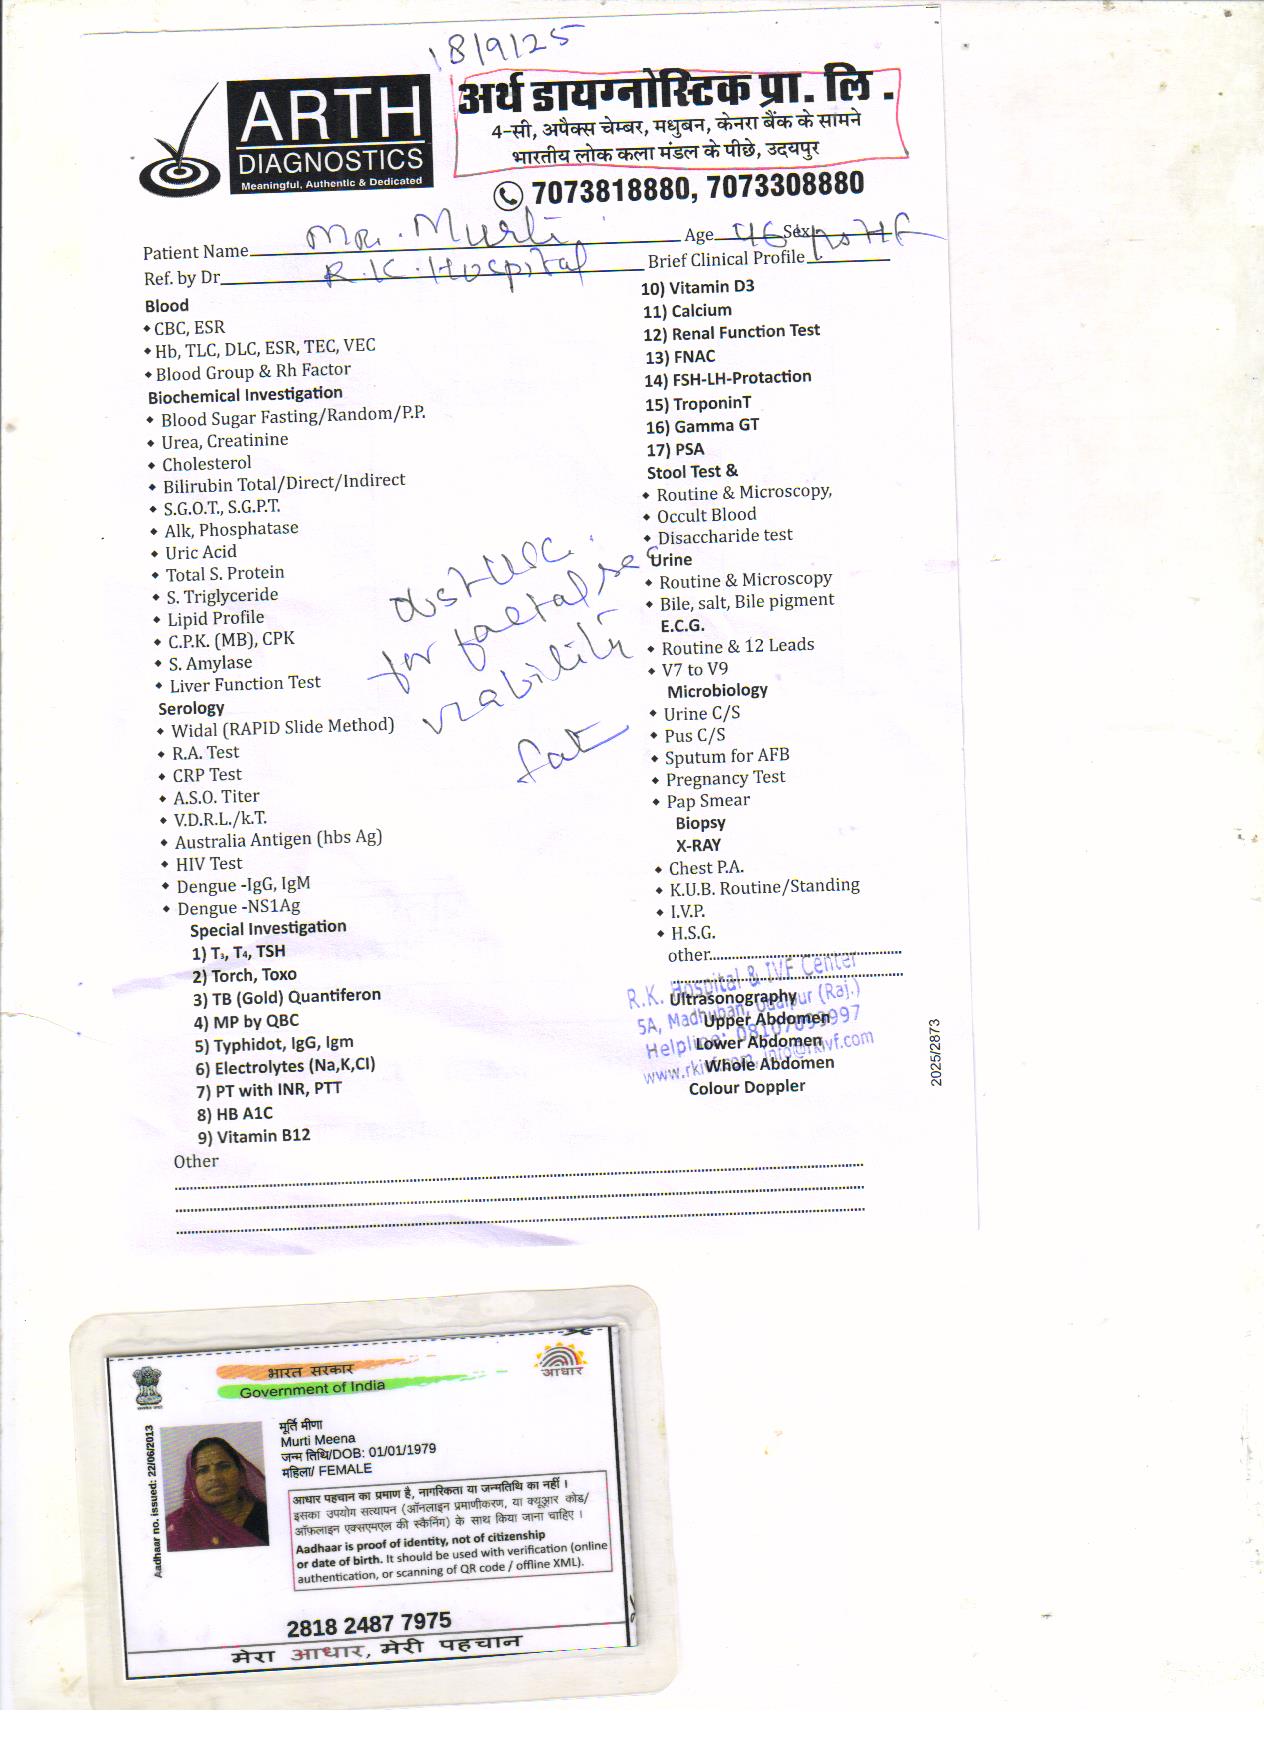 18/9/25
ARTH
DIAGNOSTICS
Meaningful, Authentic & Dedicated
अर्थ डायग्नोस्टिक प्रा. लि .
4-सी, अपैक्स चेम्बर, मधुबन, केनरा बैंक के सामने
भारतीय लोक कला मंडल के पीछे, उदयपुर
7073818880, 7073308880
Patient Name Murti Age 46 Sex
Ref. by Dr R.K. Hospital Brief Clinical Profile
Blood
CBC, ESR
Hb, TLC, DLC, ESR, TEC, VEC
Blood Group & Rh Factor
Biochemical Investigation
Blood Sugar Fasting/Random/P.P.
Urea, Creatinine
Cholesterol
Bilirubin Total/Direct/Indirect
S.G.O.T., S.G.P.T.
Alk, Phosphatase
Uric Acid
Total S. Protein
S. Triglyceride
Lipid Profile
C.P.K. (MB), CPK
S. Amylase
Liver Function Test
Serology
Widal (RAPID Slide Method)
R.A. Test
CRP Test
A.S.O. Titer
V.D.R.L./k.T.
Australia Antigen (hbs Ag)
HIV Test
Dengue -IgG, IgM
Dengue -NS1Ag
Special Investigation
1) T3, T4, TSH
2) Torch, Toxo
3) TB (Gold) Quantiferon
4) MP by QBC
5) Typhidot, IgG, Igm
6) Electrolytes (Na,K,Cl)
7) PT with INR, PTT
8) HB A1C
9) Vitamin B12
Other
for faetal
viability
10) Vitamin D3
11) Calcium
12) Renal Function Test
13) FNAC
14) FSH-LH-Protaction
15) TroponinT
16) Gamma GT
17) PSA
Stool Test &
Routine & Microscopy,
Occult Blood
Disaccharide test
Urine
Routine & Microscopy
Bile, salt, Bile pigment
E.C.G.
Routine & 12 Leads
V7 to V9
Microbiology
Urine C/S
Pus C/S
Sputum for AFB
Pregnancy Test
Pap Smear
Biopsy
X-RAY
Chest P.A.
K.U.B. Routine/Standing
I.V.P.
H.S.G.
other
Ultrasonography
Upper Abdomen
Lower Abdomen
Whole Abdomen
Colour Doppler
R.K. Hospital & IVF Center
5A, Madhuban, Udaipur (Raj.)
Helpline:
2025/2873
भारत सरकार
Government of India
आधार
Aadhaar no. issued: 22/06/2013
मूर्ति मीणा
Murti Meena
जन्म तिथि/DOB: 01/01/1979
महिला/ FEMALE
आधार पहचान का प्रमाण है, नागरिकता या जन्मतिथि का नहीं ।
इसका उपयोग सत्यापन (ऑनलाइन प्रमाणीकरण, या क्यूआर कोड/
ऑफ़लाइन एक्सएमएल की स्कैनिंग) के साथ किया जाना चाहिए ।
Aadhaar is proof of identity, not of citizenship
or date of birth. It should be used with verification (online
authentication, or scanning of QR code / offline XML).
2818 2487 7975
मेरा आधार, मेरी पहचान